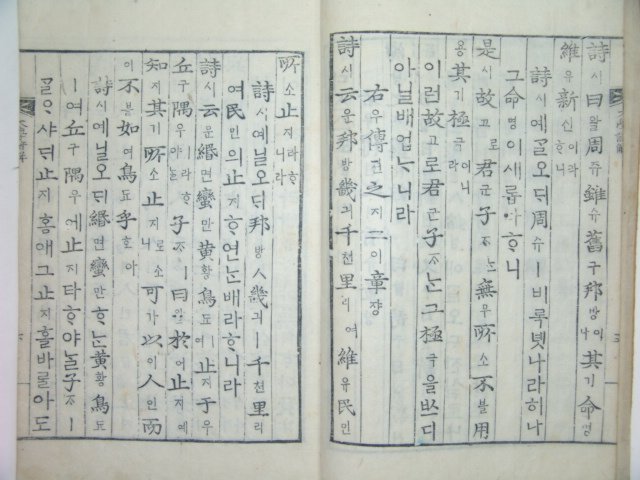 詩시曰왈周쥬雖슈舊구邦방이나其기命명
維유新신이라ᄒᆞ니
詩시예ᄀᆞᆯ오ᄃᆡ周쥬ㅣ비록녯나라히나
그命명이새롭다ᄒᆞ니
是시故고로君군子ᄌᆞᄂᆞᆫ無무所소不블用
용其기極극이니라
이런故고로君군子ᄌᆞᄂᆞᆫ그極극을ᄡᅳ디
아닐배업ᄂᆞ니라
右우傳뎐之지二이章쟝
詩시云운邦방畿긔千쳔里리여維유民민
所소止지라ᄒᆞ니라
詩시예닐오ᄃᆡ邦방ㅅ畿긔ㅣ千쳔里리
여民민의止지ᄒᆞ연ᄂᆞᆫ배라ᄒᆞ니라
詩시云운緡면蠻만黃황鳥됴여止지于우
丘구隅우ㅣ라ᄒᆞ야ᄂᆞᆯ子ᄌᆞㅣ曰왈於어止지예
知지其기所소止지로소니可가以이人인而
이不블如여鳥됴乎호아
詩시예닐오ᄃᆡ緡면蠻만ᄒᆞᄂᆞᆫ黃황鳥됴
ㅣ여丘구隅우에止지타ᄒᆞ야ᄂᆞᆯ子ᄌᆞㅣ
ᄀᆞᆯᄋᆞ샤ᄃᆡ止지홈애그止지홀바ᄅᆞᆯ아도